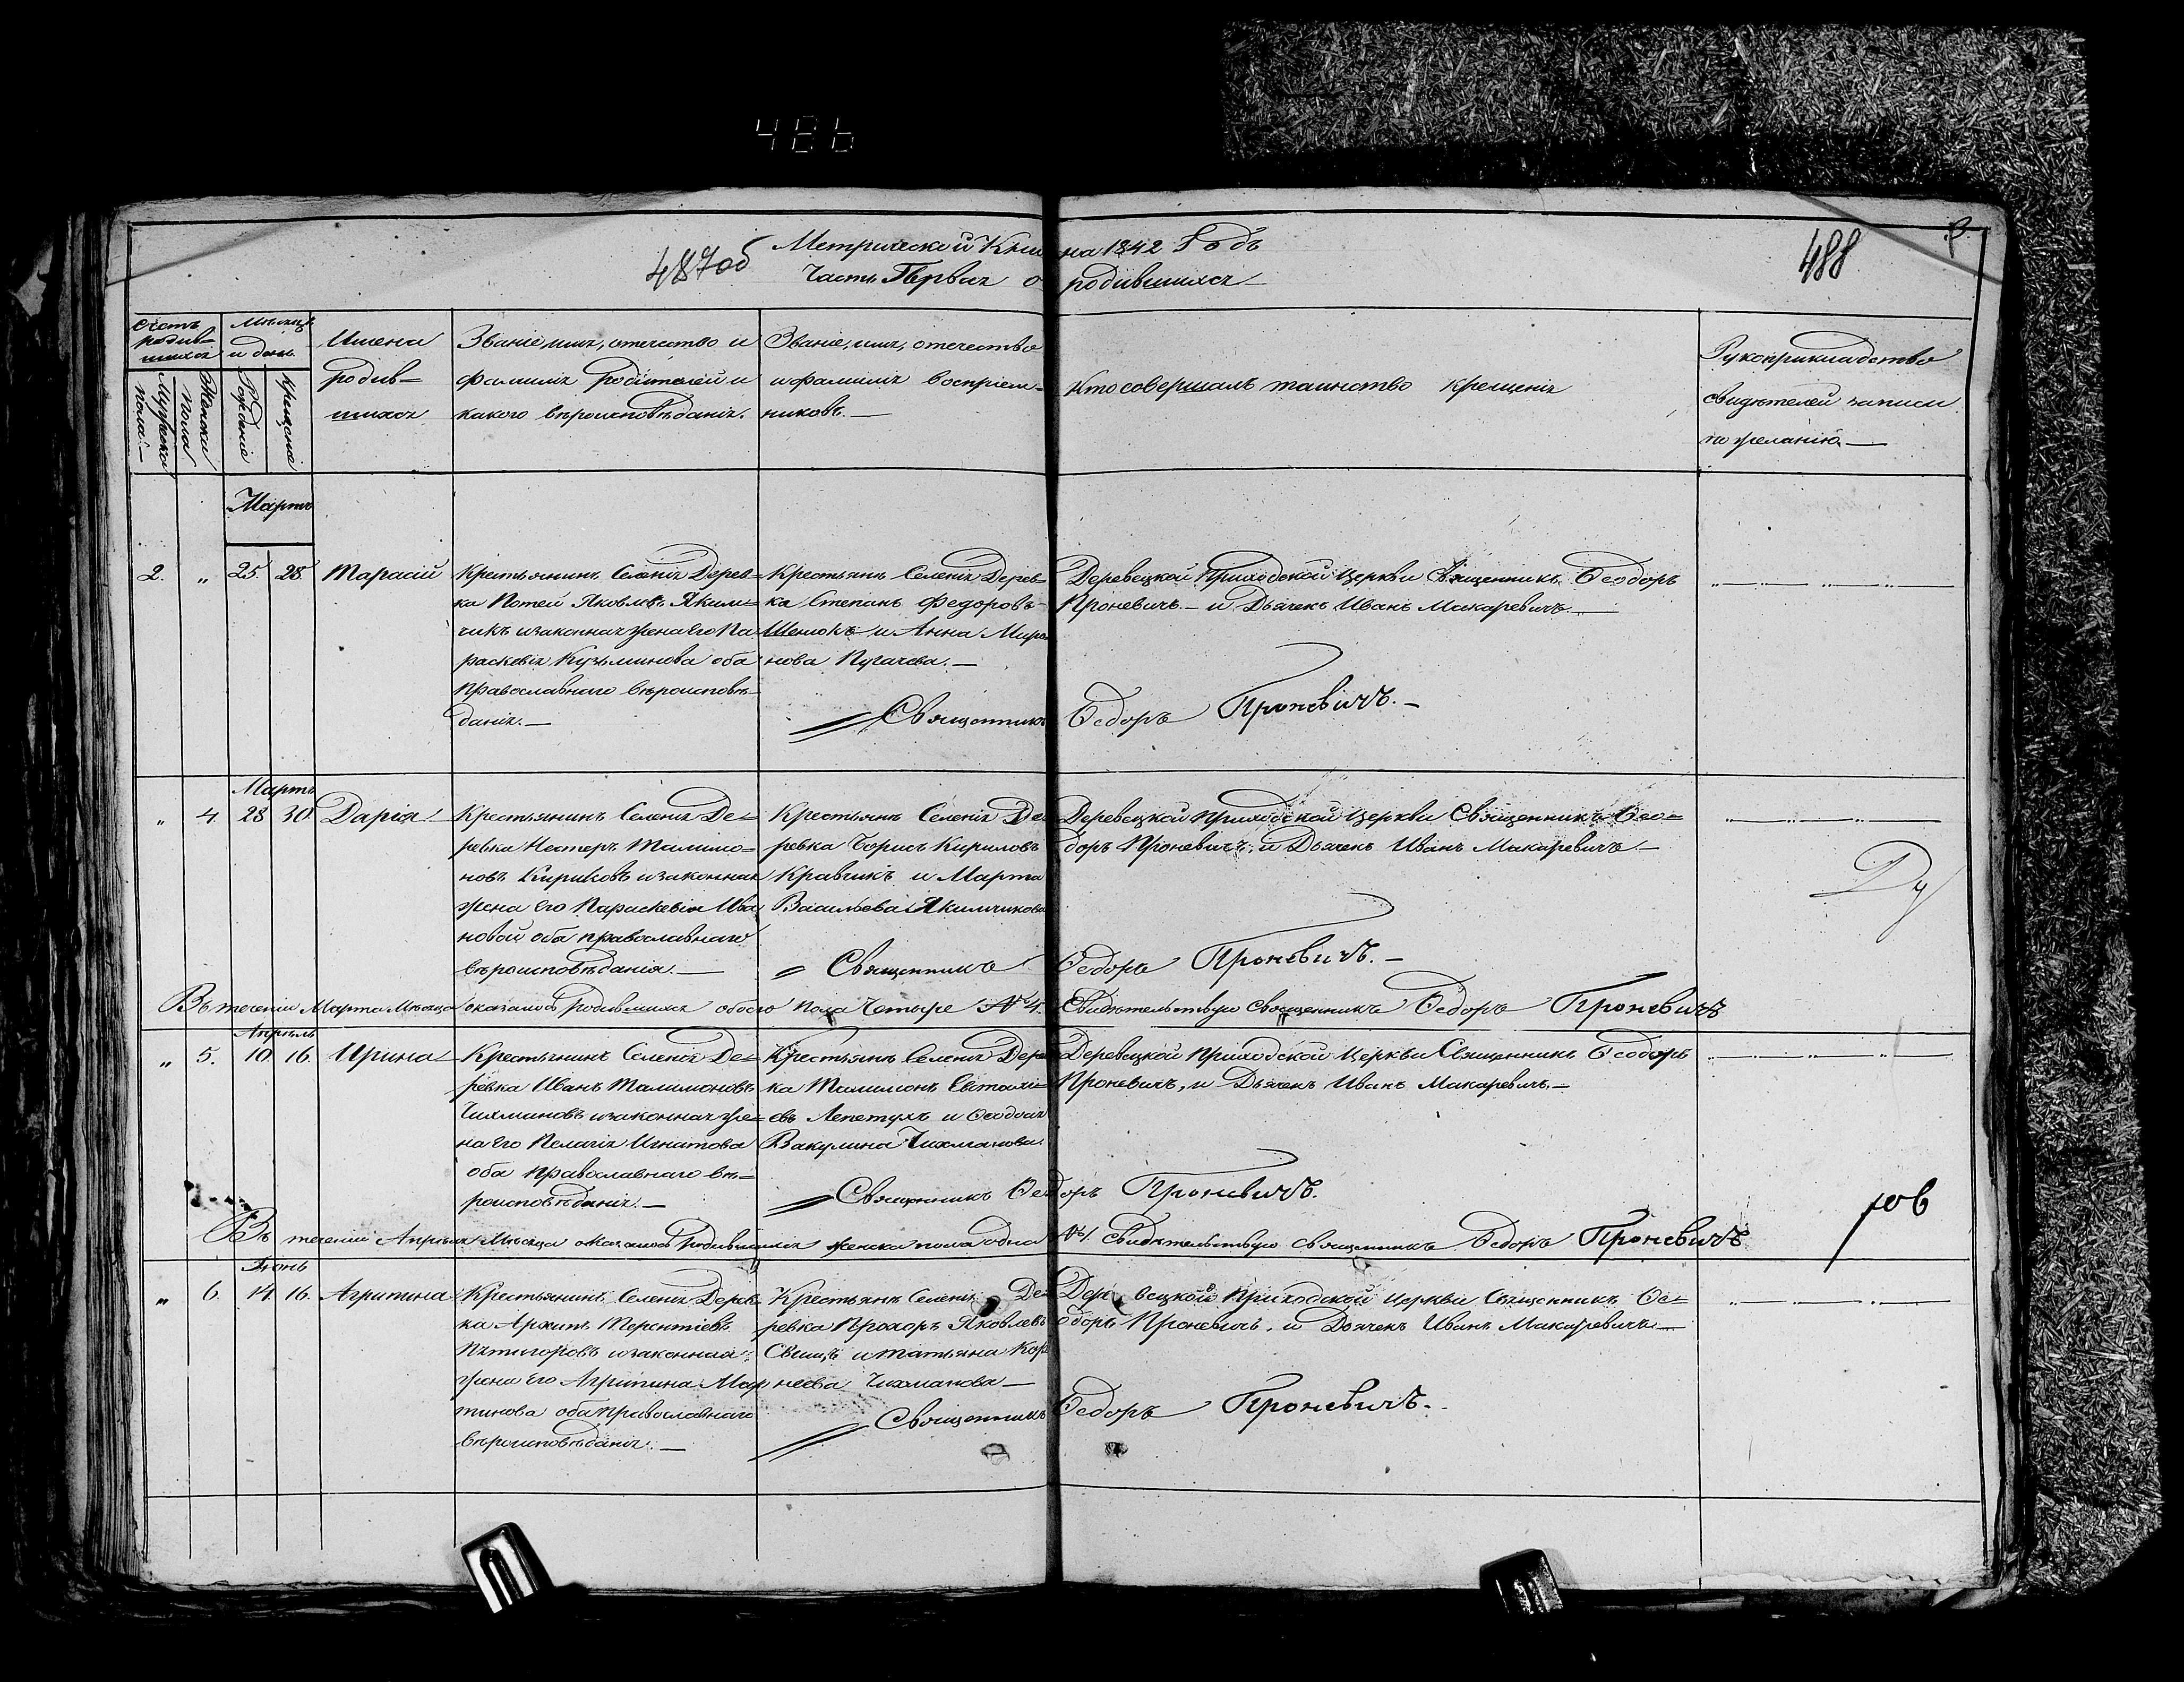 486
Метрической Кни на 1842 Годъ
487об
488
Часть Первая о родившихся
Счетъ родив=шихся
Мужеска пола.
Женска пола
Мѣсяцъ и день.
Рожденія
Крещенія
Имена
родив=
шихся
Званіе, имя, отечество и
фамилія родителей и
какого вѣроисповѣданія.
Званіе, имя, отечество
и фамилія воспріем=
никовъ.
Кто совершалъ таинство крещенія
Рукоприкладство
свидѣтелей записи
по желанію.
Мартъ
2. „ 25. 28. Тарасій
Крестьянинъ Селенія Дерев=
ка Потей Яковлевъ Яким=
чикъ и законная жена его Па
раскевія Кузьминова оба
Православнаго вѣроисповѣ=
данія.
Крестьянъ Селенія Дерев=
ка Степанъ Федоровъ
Шенюкъ и Анна Миро
нова Пугачева.
Деревецкой Приходской Церкви Священникъ Ѳеодоръ
Проневичъ и Дьячекъ Иванъ Макаревичъ
Священникъ Ѳедоръ Проневичъ.
Мартъ
„ 4. 28 30. Дарія
Крестьянинъ Селенія Де=
ревка Нестеръ Талимо=
новъ Кириковъ и законная
жена его Параскевія Ива
новой оба православнаго
вѣроисповѣданія.
Крестьянъ Селенія Де
ревка Борисъ Кириловъ
Кравчикъ и Марта
Васильева Якимчикова
Деревецкой Приходской Церкви Священникъ Ѳео=
доръ Проневичъ, и Дьячекъ Иванъ Макаревичъ.
Ду
Священникъ Ѳедоръ Проневичъ.
Въ теченіи Марта Мѣсяца оказалось родившихся обоего пола Четыре № 4. Свидѣтельствую Священникъ Ѳедоръ Проневичъ
Апрѣль
„ 5. 10. 16. Ирина
Крестьянинъ Селенія Де=
ревка Иванъ Талимоновъ
Чихмановъ и законная же=
на его Пелагія Игнатова
оба Православнаго вѣ=
роисповѣданія.
Крестьянъ Селенія Дерев
ка Талимонъ Евтихіе=
въ Лепетухъ и Ѳеодосія
Вакулина Чихманова.
Деревецкой Приходской Церкви Священникъ Ѳеодоръ
Проневичъ, и Дьячекъ Иванъ Макаревичъ.
Священникъ Ѳедоръ Проневичъ.
Въ теченіи Апрѣля Мѣсяца оказалось родившихся женска пола одна №1. Свидѣтельствую священникъ Ѳедоръ Проневичъ
Іюнь
„ 6. 14. 16. Агрипина
Крестьянинъ Селенія Дерев
ка Архипъ Терентіевъ
Пятигоровъ и законная
жена его Агрипина Мар
тинова оба Православнаго
вѣроисповѣданія.
Крестьянъ Селенія Де=
ревка Прохоръ Яковлевъ
и Татьяна Кор
неева Чихманова
Дер вецкой Приходской Церкви Священникъ Ѳе=
одоръ Проневичъ, и Дьячекъ Иванъ Макаревичъ
Священникъ Ѳедоръ Проневичъ.